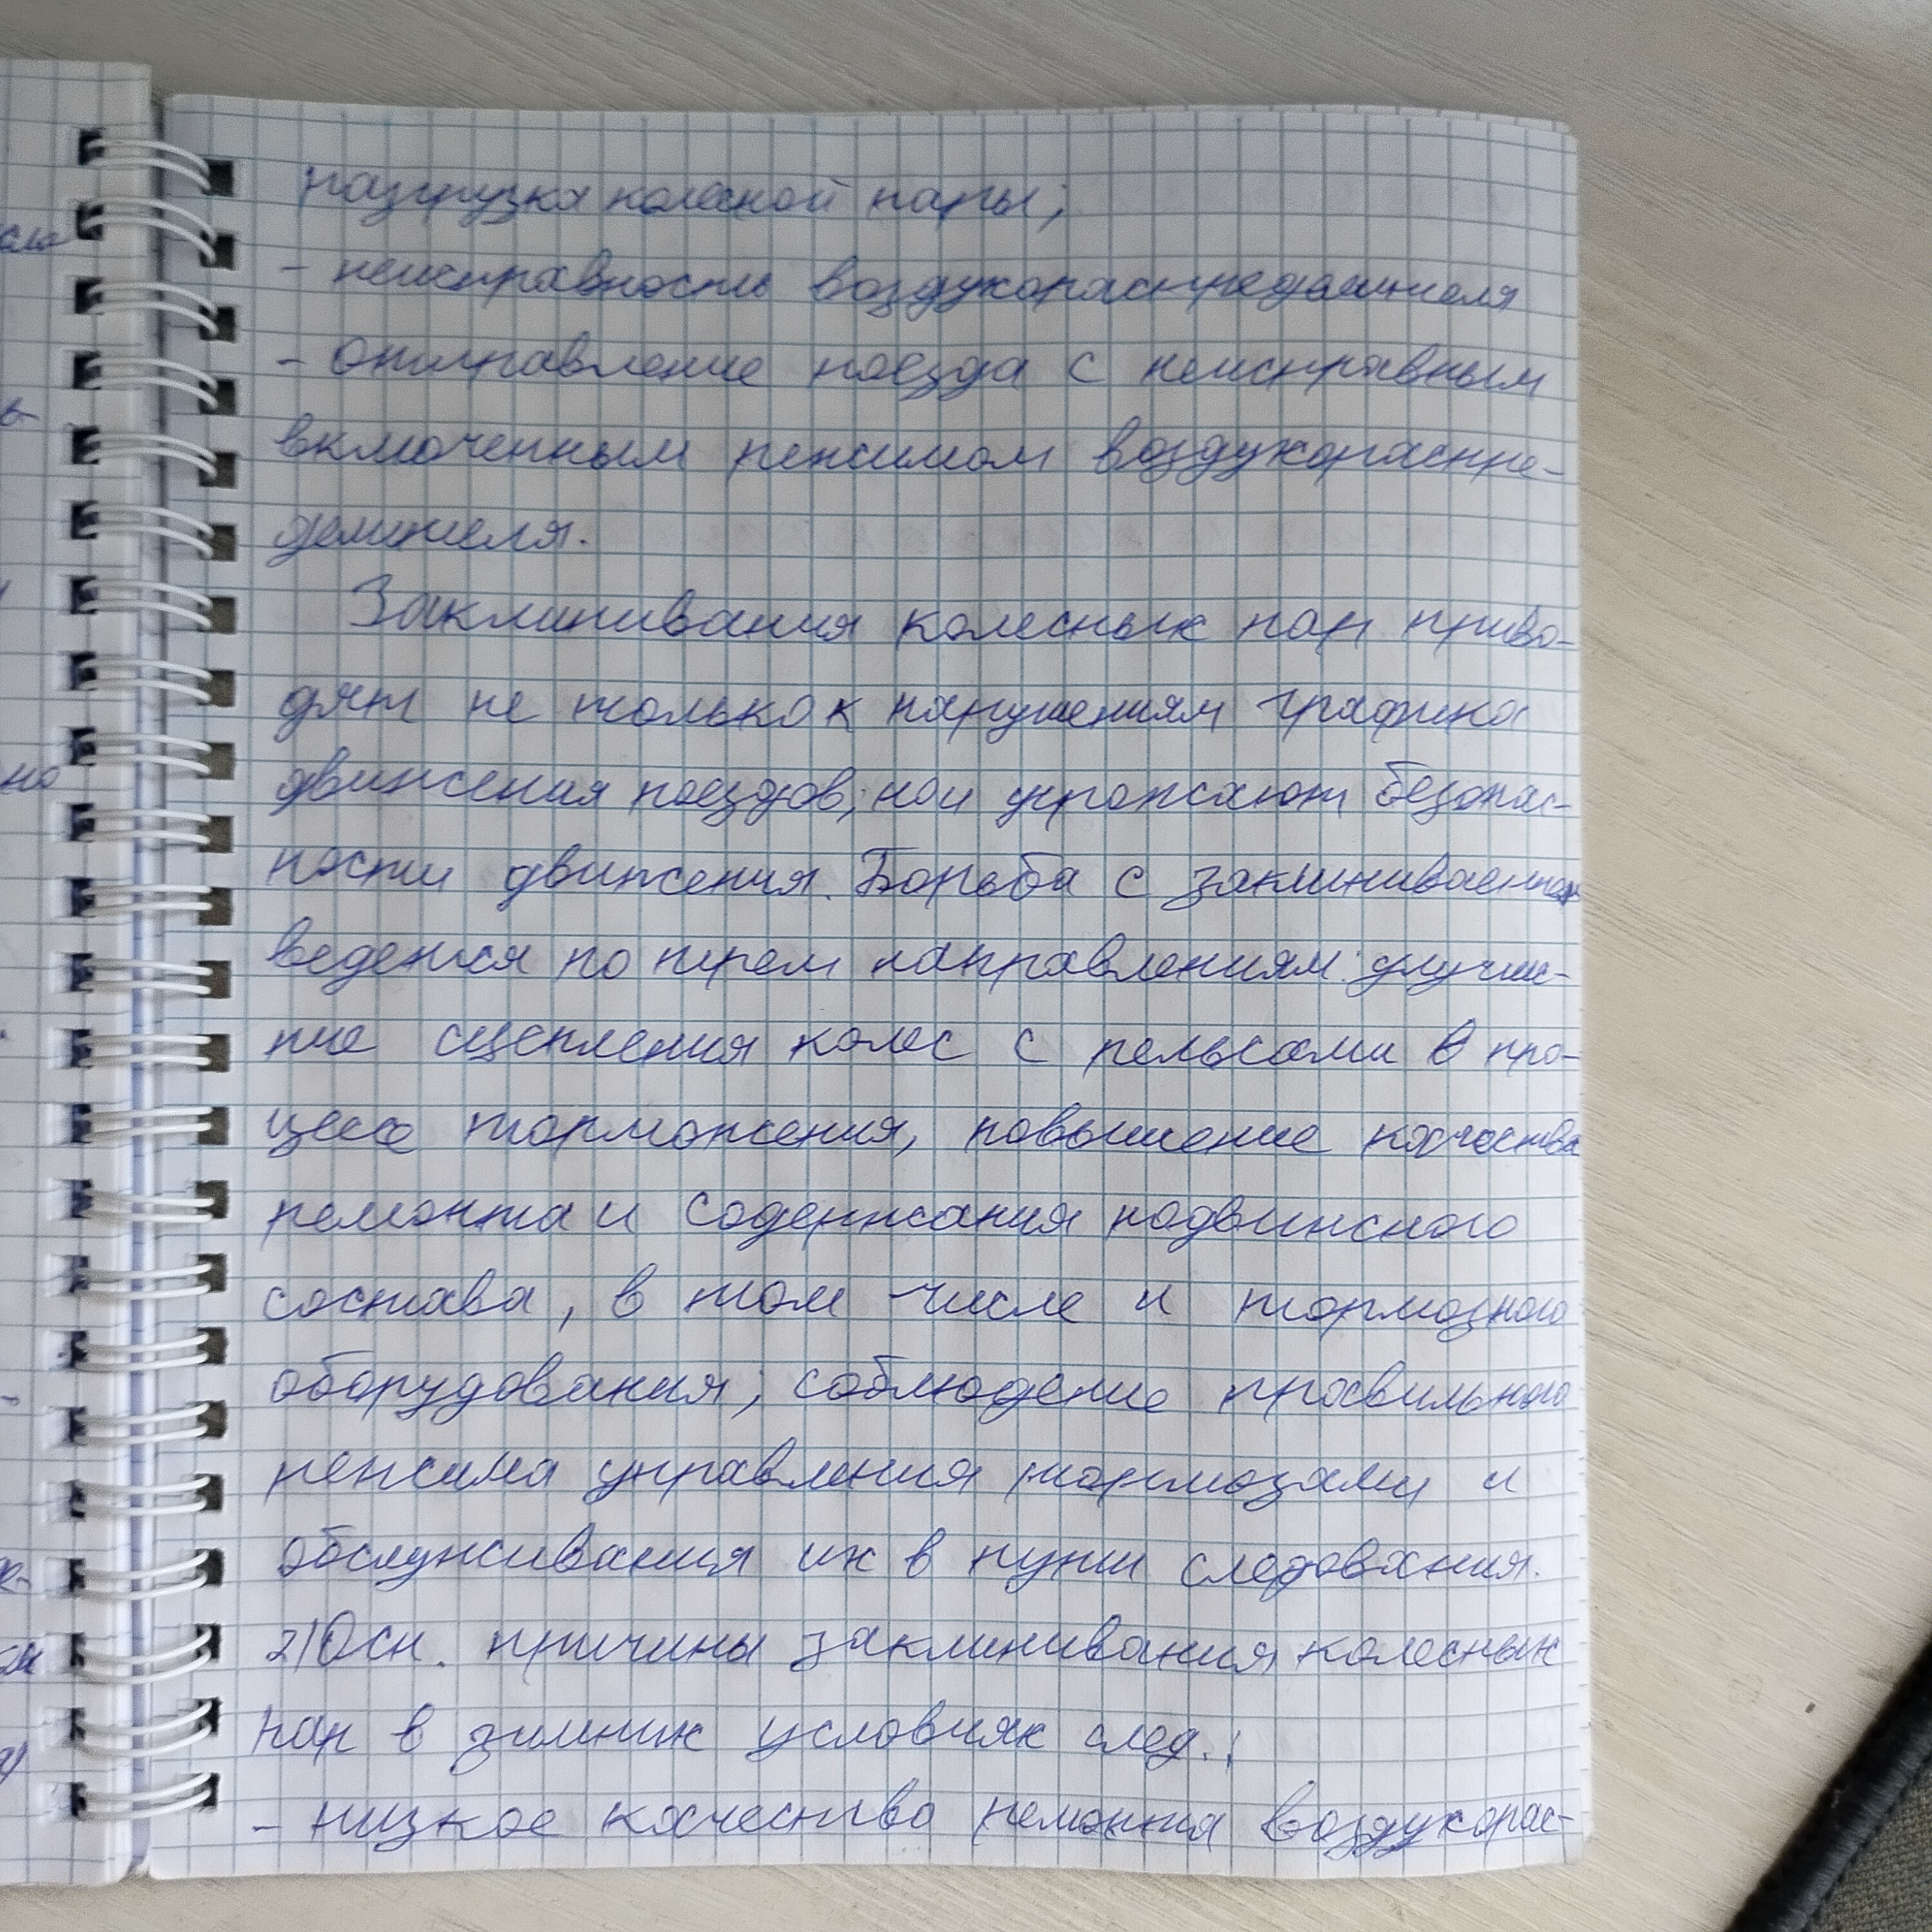 разгрузка колесной пары;
- неисправность воздухораспределителя
- отправление поезда с неисправным
включенным режимом воздухораспре-
делителя.
Заклинивания колесных пар приво-
дят не только к нарушениям графика
движения поездов, но и угрожают безопас-
ности движения. Борьба с заклиниванием
ведется по трем направлениям: улучше-
ние сцепления колес с рельсами в про-
цессе торможения, повышение качества
ремонта и содержания подвижного
состава, в том числе и тормозного
оборудования; соблюдение правильного
режима управления тормозами и
обслуживания их в пути следования.
2) Осн. причины заклинивания колесных
пар в зимних условиях след.:
- низкое качество ремонта воздухорас-